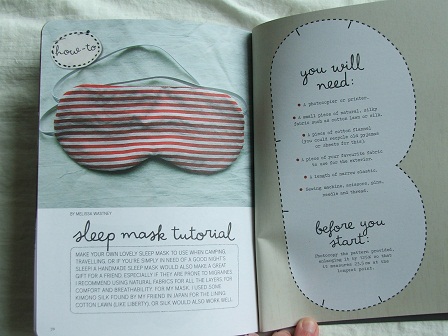 how-to
BY MELISSA WASTNEY
sleep mask tutorial
MAKE YOUR OWN LOVELY SLEEP MASK TO USE WHEN CAMPING,
TRAVELLING, OR IF YOU'RE SIMPLY IN NEED OF A GOOD NIGHT'S
SLEEP! A HANDMADE SLEEP MASK WOULD ALSO MAKE A GREAT
GIFT FOR A FRIEND, ESPECIALLY IF THEY ARE PRONE TO MIGRAINES.
I RECOMMEND USING NATURAL FABRICS FOR ALL THE LAYERS FOR
COMFORT AND BREATHABILITY. FOR MY MASK, I USED SOME
KIMONO SILK FOUND BY MY FRIEND IN JAPAN FOR THE LINING.
COTTON LAWN (LIKE LIBERTY), OR SILK WOULD ALSO WORK WELL.
you will
need:
A photocopier or printer.
A small piece of natural, silky
fabric such as cotton lawn or silk.
A piece of cotton flannel
(you could recycle old pyjamas
or sheets for this).
A piece of your favourite fabric
to use for the exterior.
A length of narrow elastic.
Sewing machine, scissors, pins,
needle and thread.
before you
start:
Photocopy the pattern provided,
enlarging it by so that
it measures at its
longest point.